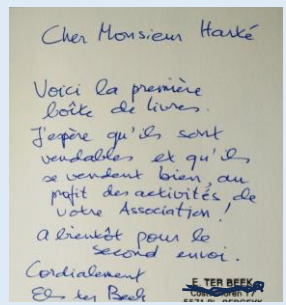 Cher Monsieur Harké
Voici la première
boîte de livres.
J'espère qu'ils sont
vendables et qu'ils
se vendent bien, au
profit des activités de
votre Association !
A bientôt pour le
second envoi.
Cordialement
Els ter Beek
E. TER BEEK